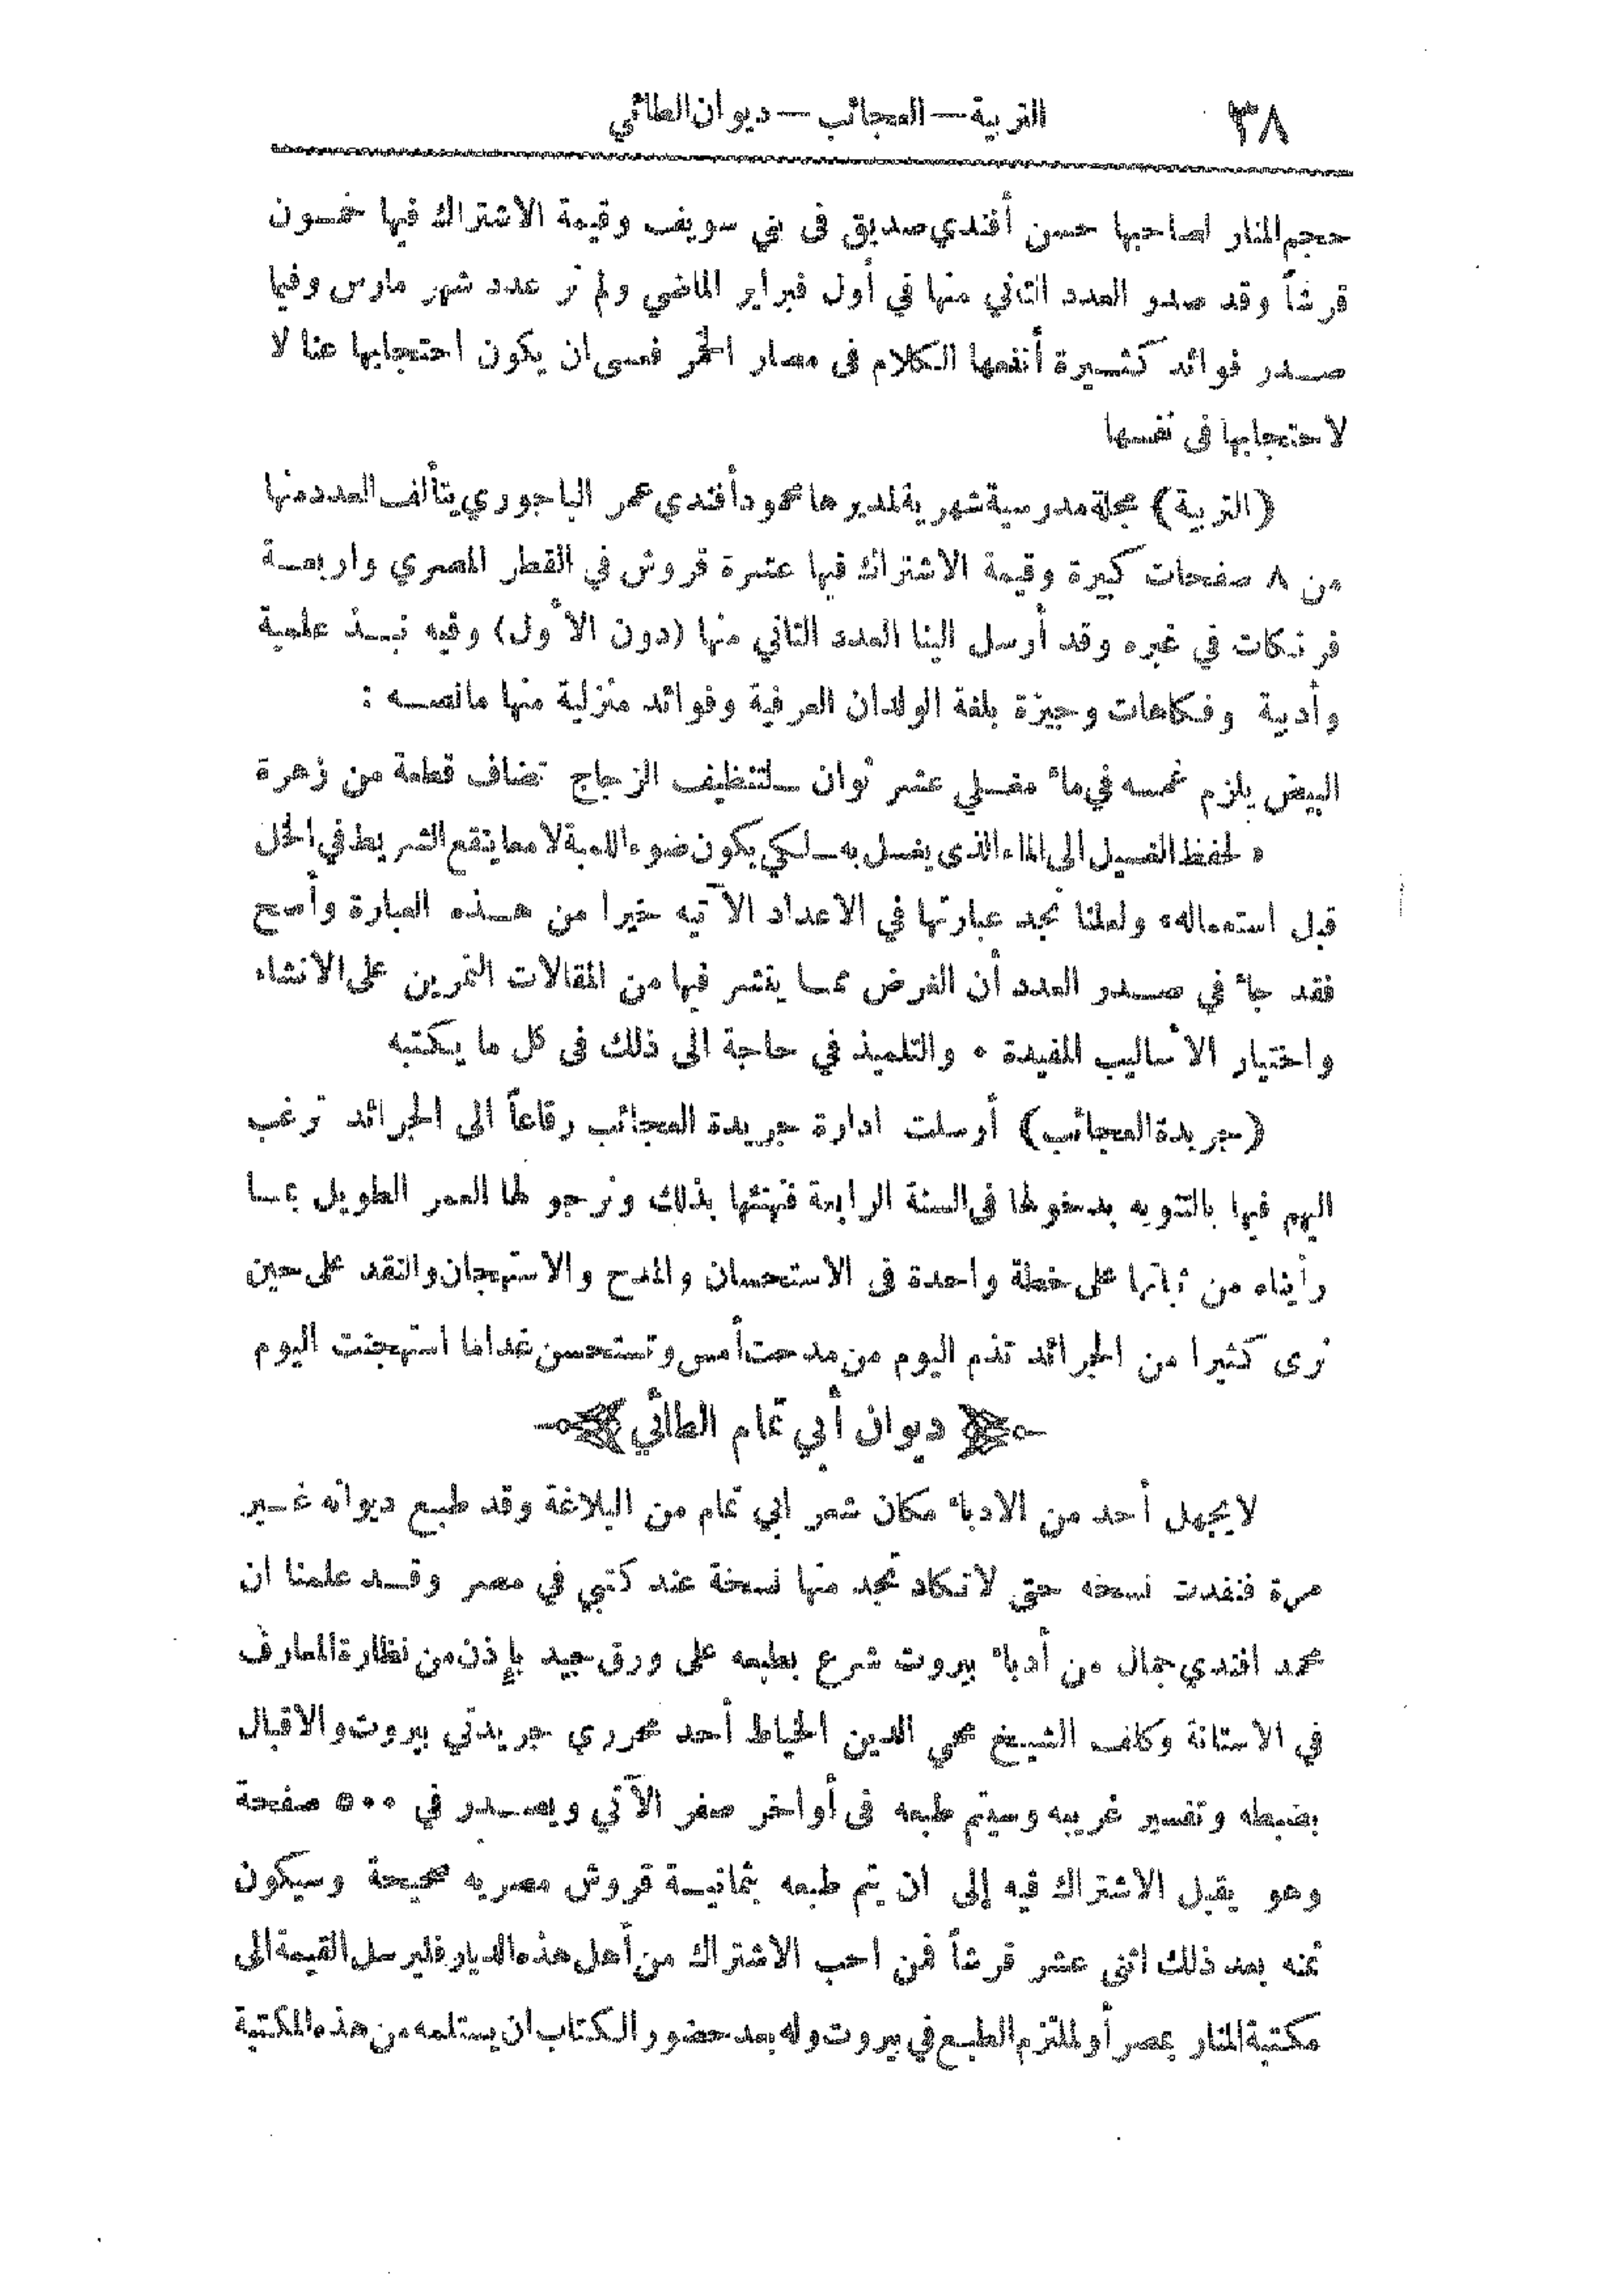 ٣٨ التربية — العجائب — ديوان الطائي
حجم المنار لصاحبها حسن أفندي صديق فى بني سويف وقيمة الاشتراك فيها خمسون
قرشاً وقد صدر العدد الثاني منها في أول فبراير الماضي ولم نر عدد شهر مارس وفيما
صدر فوائد كثيرة أنفعها الكلام فى مضار الخمر فعسى ان يكون احتجابها عنا لا
لاحتجابها فى نفسها
(التربية) مجلة مدرسية شهرية لمديرها محمود أفندي عمر الباجوري يتألف العدد منها
من ٨ صفحات كبيرة وقيمة الاشتراك فيها عشرة قروش في القطر المصري واربعة
فرنكات في غيره وقد أرسل الينا العدد الثاني منها (دون الأول) وفيه نبذ علمية
وأدبية وفكاهات وجيزة بلغة الولدان العرفية وفوائد منزلية منها مانصه :
البيض يلزم غمسه في ماء مغلي عشر ثوان ــ لتنظيف الزجاج تضاف قطعة من زهرة
لحفظ الغسيل الى الماء الذى يغسل به ــ لكي يكون ضوء اللمبة لامعا ينقع الشريط في الخل
قبل استعماله، ولعلنا نجد عبارتها في الاعداد الآتيه خيرا من هذه العبارة وأصح
فقد جاء في صدر العدد أن الغرض مما ينشر فيها من المقالات التمرين على الانشاء
واختيار الأساليب المفيدة ٠ والتلميذ في حاجة الى ذلك فى كل ما يكتبه
(جريدة العجائب) أرسلت ادارة جريدة العجائب رقاعاً الى الجرائد ترغب
اليهم فيها بالتنويه بدخولها فى السنة الرابعة فنهنئها بذلك ونرجو لها العمر الطويل بما
رأيناه من ثباتها على خطة واحدة فى الاستحسان والمدح والاستهجان والنقد على حين
نرى كثيرا من الجرائد تذم اليوم من مدحت أمس وتستحسن غدا ما استهجنت اليوم
ديوان أبي تمام الطائي
لا يجهل أحد من الادباء مكان شعر ابي تمام من البلاغة وقد طبع ديوانه غير
مرة فنفدت نسخه حتى لا تكاد تجد منها نسخة عند كتبي في مصر وقد علمنا ان
محمد افندي جمال من أدباء بيروت شرع بطبعه على ورق جيد بإذن من نظارة المعارف
في الاستانة وكلف الشيخ محي الدين الخياط أحد محرري جريدتي بيروت والاقبال
بضبطه وتفسير غريبه وسيتم طبعه فى أواخر صفر الآتي ويصدر في ٥٠٠ صفحة
وهو يقبل الاشتراك فيه إلى ان يتم طبعه بثمانية قروش مصريه صحيحة وسيكون
ثمنه بعد ذلك اثنى عشر قرشاً فمن احب الاشتراك من أهل هذه الديار فليرسل القيمة الى
مكتبة المنار بمصر أو لملتزم الطبع في بيروت وله بعد حضور الكتاب ان يستلمه من هذه المكتبة